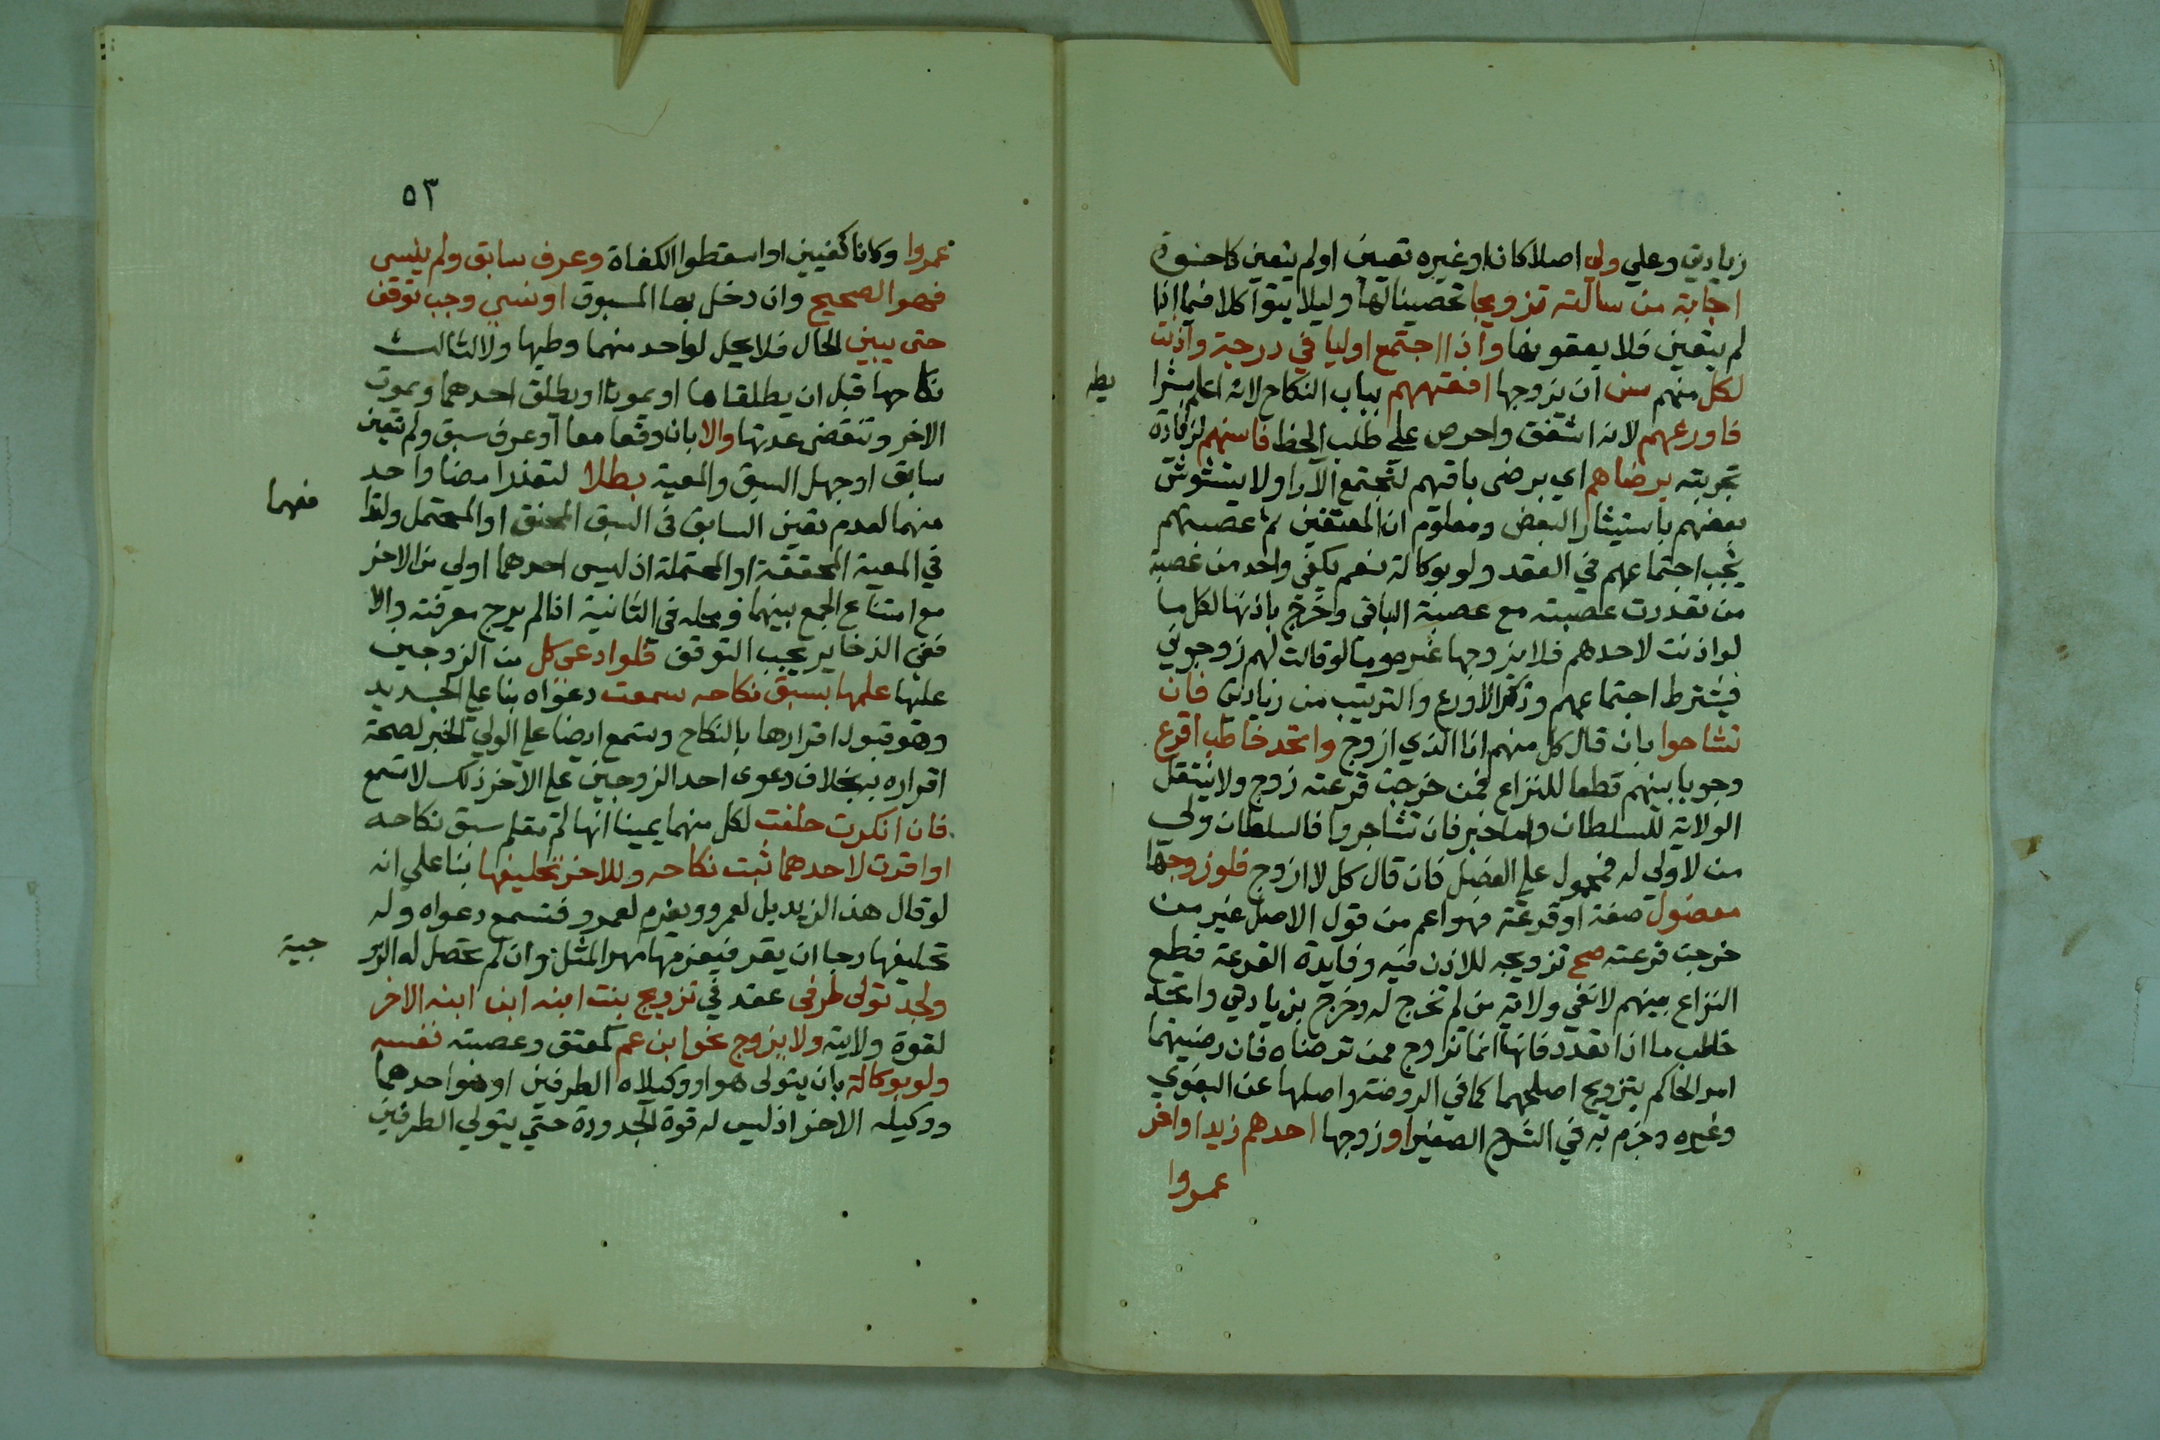 زيادتي وعلي ولي اصلا كان او غيره تعين او لم يتعين كاخوة
اجابة من سالته تزويجا تحصينا لها وليلا يتواكلا فيما اذا
لم يتعين فلا يعفونها واذا اجتمع اوليا في درجة واذنت
لكل منهم سن ان يزوجها افقههم بباب النكاح لانه اعلم بشرا
يطه
فاورعهم لانه اشفق واحرص علي طلب الحظ فاسنهم لزيادة
تجربته برضاهم اي برضى باقيهم لتجتمع الارا ولا يتشوش
بعضهم باستيثار البعض ومعلوم ان المعتقين ثم عصبتهم
يجب اجتماعهم في العقد ولو بوكالة نعم يكفي واحد من عصبة
من تعددت عصبته مع عصبة الباقي وخرج باذنها لكل ما
لو اذنت لاحدهم فلا يزوجها غيره وما لو قالت لهم زوجوني
فيشترط اجتماعهم وذكر الاورع والترتيب من زيادتي فان
تشاحوا بان قال كل منهم انا الذي ازوج واتحد خاطب اقرع
وجوبا بينهم قطعا للنزاع فمن خرجت قرعته زوج ولا تنتقل
الولاية للسلطان واما خبر فان تشاجروا فالسلطان ولي
من لا ولي له فمحمول علي العضل فان قال كل لا ازوج فلو زوجها
مفضول صفة او قرعة فهو اعم من قول الاصل غير من
خرجت قرعته صح تزويجه للاذن فيه وفايدة القرعة قطع
النزاع بينهم لا نفي ولاية من لم تخرج له وخرج بزيادتي واتحد
خاطب ما اذا تعدد فانها انما تزوج ممن ترضاه فان رضيتهما
امر الحاكم بتزويج اصلحهما كما في الروضة واصلها عن البغوي
وغيره وجزم به في الشرح الصغير او زوجها احدهم زيدا واخر
عمروا
٥٣
عمروا وكانا كفيين او اسقطوا الكفاة وعرف سابق ولم ينسى
فهو الصحيح وان دخل بها المسبوق او نسي وجب توقف
حتى يبين الحال فلا يحل لواحد منهما وطيها ولا لثالث
نكاحها قبل ان يطلقاها او يموتا او يطلق احدهما ويموت
الاخر وتنقضى عدتها والا بان وقعا معا او عرف سبق ولم تعين
سابق او جهل السبق والمعية بطلا لتعذر امضا واحد
منهما لعدم تعين السابق في السبق المحقق او المحتمل ولتدا
فعهما
في المعية المحققة او المحتملة اذ ليس احدهما اولي من الاخر
مع امتناع الجمع بينهما ومحله في الثانية اذا لم يرج معرفته والا
ففي الذخاير يجب التوقف فلو ادعى كل من الزوجين
عليها علمها بسبق نكاحه سمعت دعواه بنا علي الجديد
وهو قبول اقرارها بالنكاح وتسمع ايضا علي الولي المجبر لصحة
اقراره به بخلاف دعوى احد الزوجين علي الاخر ذلك لا تسمع
فان انكرت حلفت لكل منهما يمينا انها لم تعلم سبق نكاحه
او اقرت لاحدهما ثبت نكاحه وللاخر تحليفها بنا علي انه
لو قال هذا لزيد بل لعمرو ويغرم لعمرو فتسمع دعواه وله
تحليفها رجا ان يقر فيغرمها مهر المثل وان لم تحصل له الزو
جية
ولجد تولى طرفى عقد في تزويج بنت ابنه ابن ابنه الاخر
لقوة ولايته ولا يزوج نحو ابن عم كمعتق وعصبته نفسه
ولو بوكالة بان يتولى هو او وكيلاه الطرفين او هو احدهما
ووكيله الاخر اذ ليس له قوة الجدودة حتي يتولي الطرفين